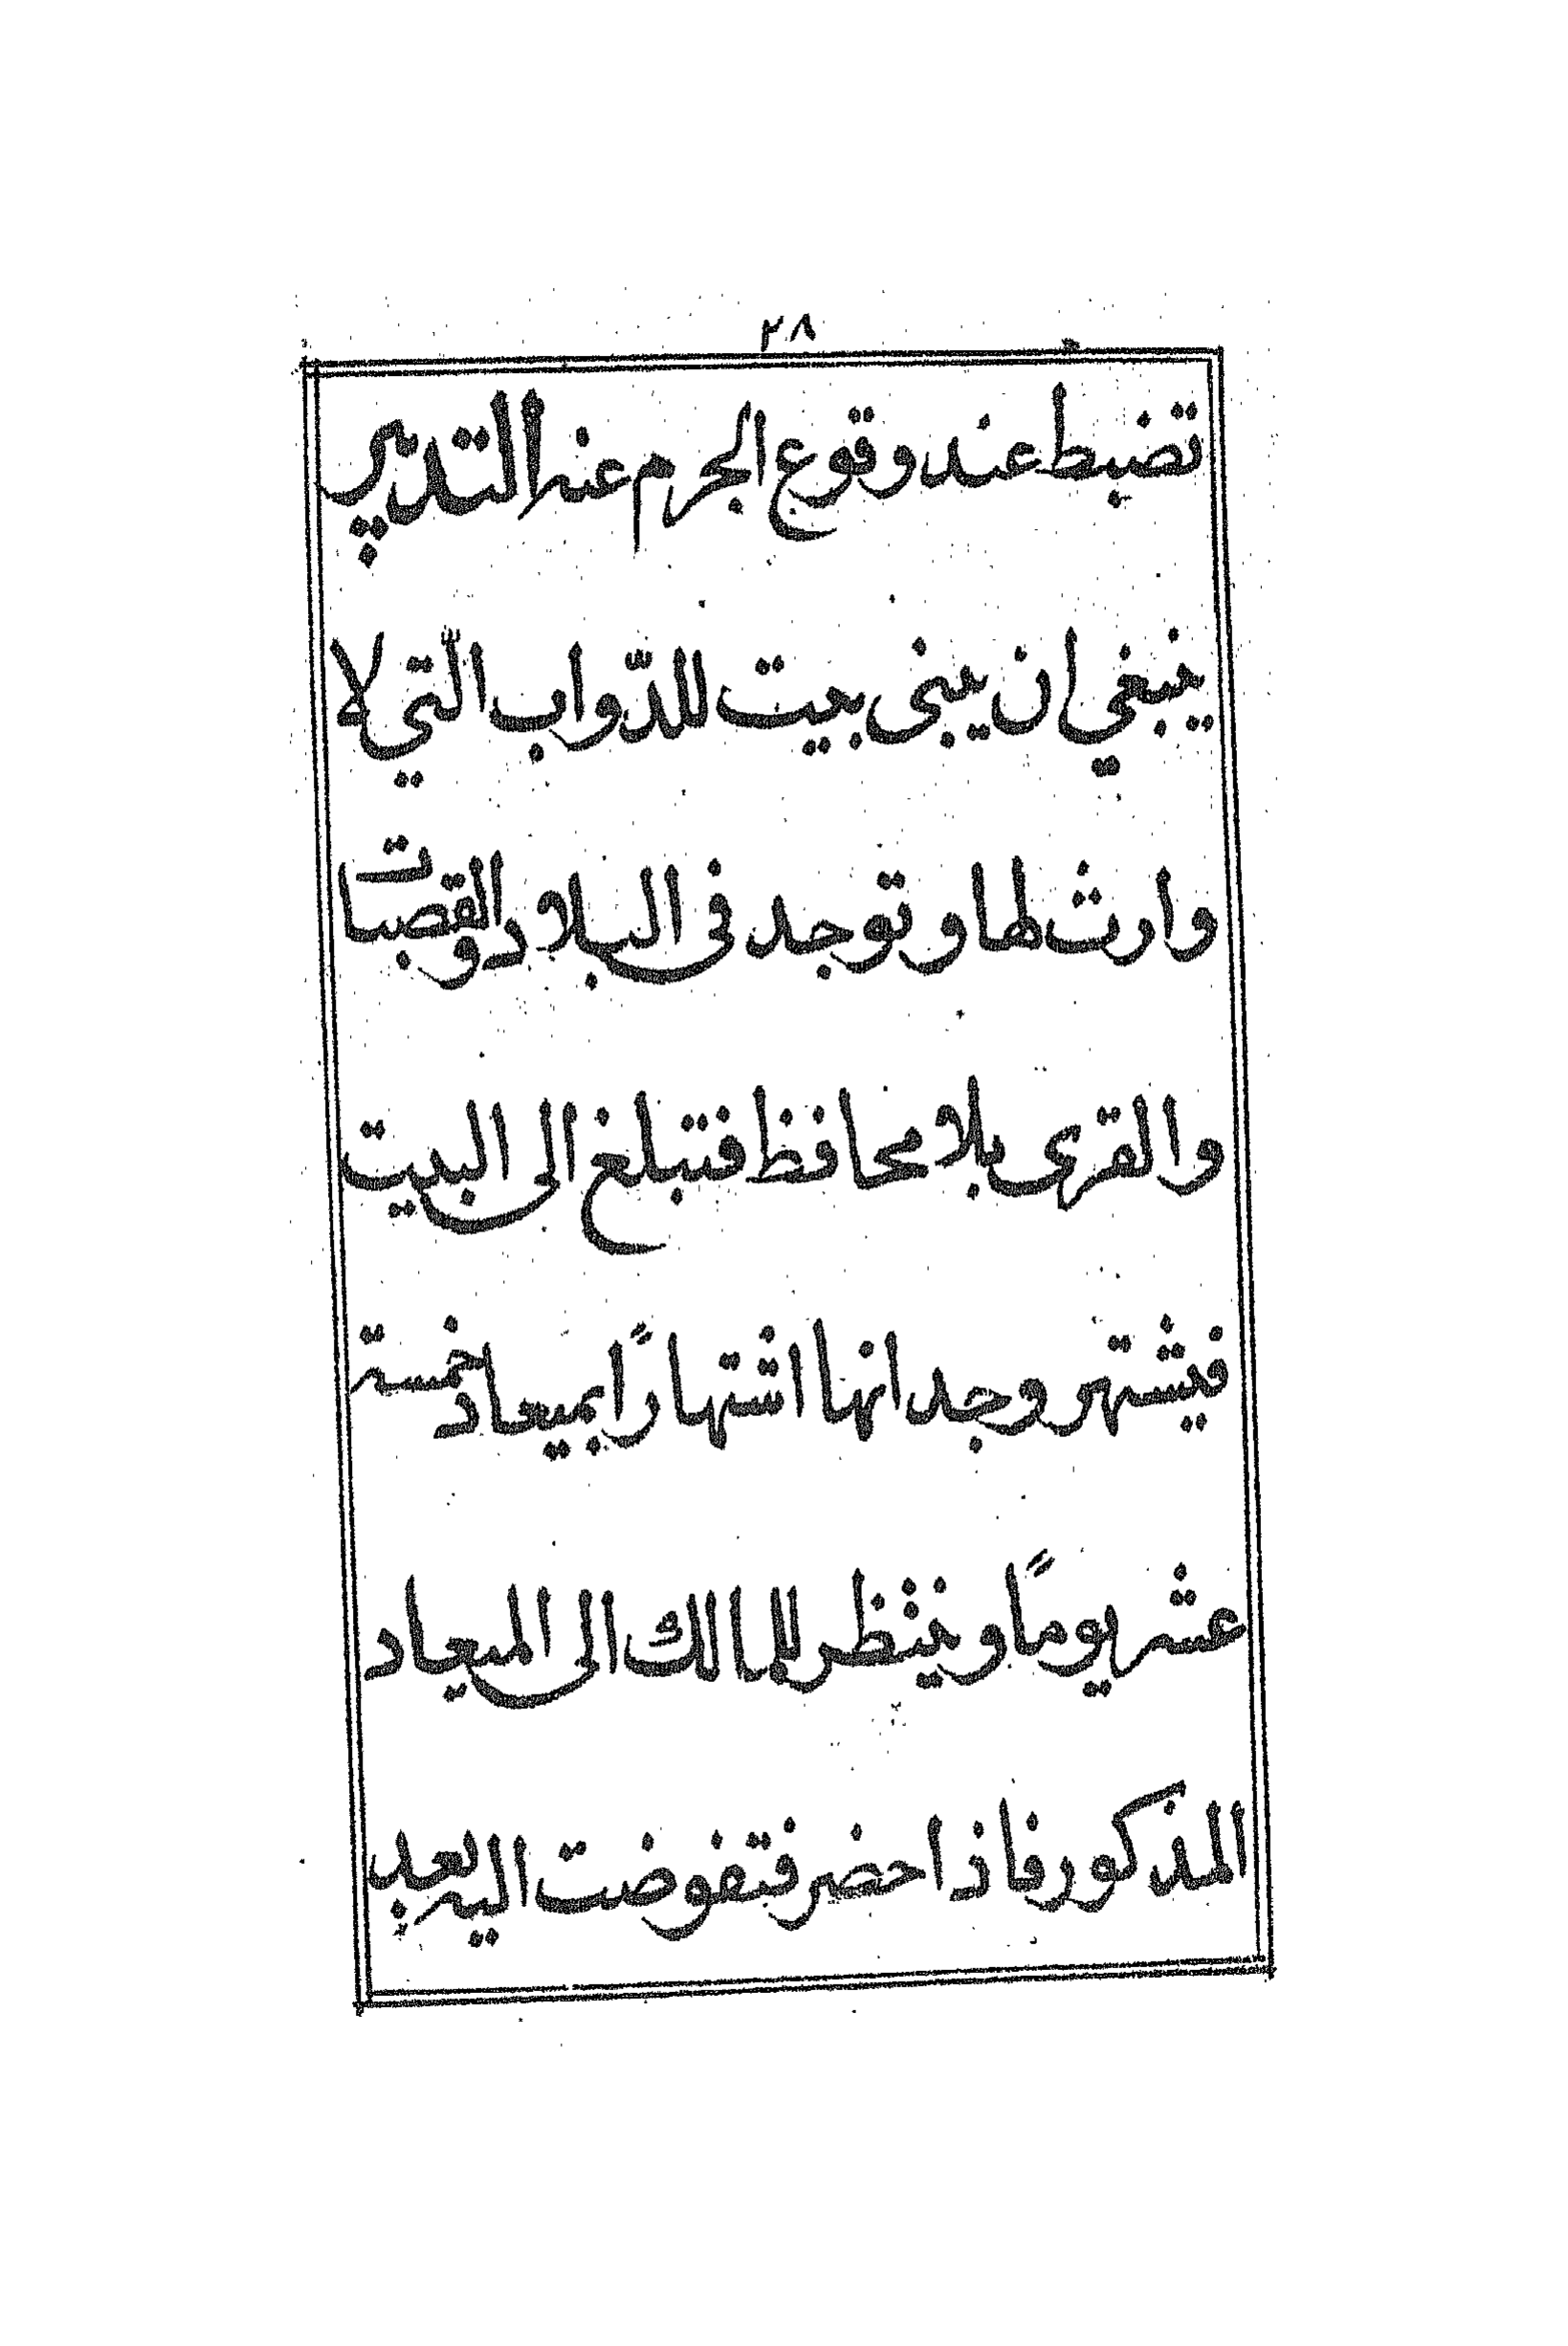 ٢٨
تضبط عند وقوع الجرم عنه التدبير
ينبغي ان يبنى بيت للدّواب الّتي لا
وارث لها وتوجد فى البلاد والقصبات
والقرى بلا محافظ فتبلغ الى البيت
فيشتهر وجدانها اشتهارًا بميعاد خمسة
عشر يومًا وينتظر للمالك الى الميعاد
المذكور فاذا حضر فتفوضت اليه بعد